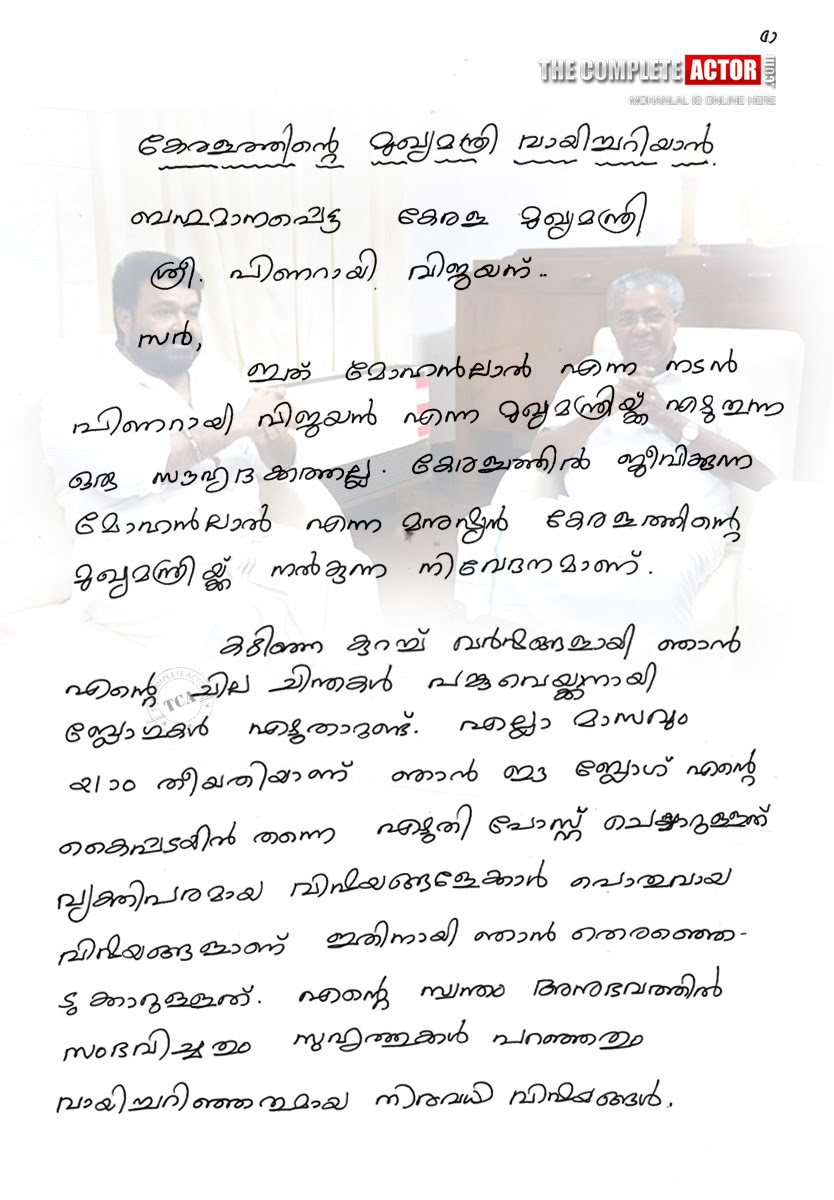 ൧
THE COMPLETE ACTOR .com
MOHANLAL IS ONLINE HERE
കേരളത്തിന്റെ മുഖ്യമന്ത്രി വായിച്ചറിയാൻ.
ബഹുമാനപ്പെട്ട കേരള മുഖ്യമന്ത്രി
ശ്രീ. പിണറായി വിജയന്..
സർ,
ഇത് മോഹൻലാൽ എന്ന നടൻ
പിണറായി വിജയൻ എന്ന മുഖ്യമന്ത്രിയ്ക്ക് എഴുതുന്ന
ഒരു സൗഹൃദ കത്തല്ല. കേരളത്തിൽ ജീവിക്കുന്ന
മോഹൻലാൽ എന്ന മനുഷ്യൻ കേരളത്തിന്റെ
മുഖ്യമന്ത്രിയ്ക്ക് നൽകുന്ന നിവേദനമാണ്.
കഴിഞ്ഞ കുറച്ച് വർഷങ്ങളായി ഞാൻ
എന്റെ ചില ചിന്തകൾ പങ്കുവെയ്ക്കുന്നതായി
ബ്ലോഗുകൾ എഴുതാറുണ്ട്. എല്ലാ മാസവും
൨൧ാം തീയതിയാണ് ഞാൻ ഈ ബ്ലോഗ് എന്റെ
കൈപ്പടയിൽ തന്നെ എഴുതി പോസ്റ്റ് ചെയ്യാറുള്ളത്
വ്യക്തിപരമായ വിഷയങ്ങളേക്കാൾ പൊതുവായ
വിഷയങ്ങളാണ് ഇതിനായി ഞാൻ തെരഞ്ഞെ-
ടുക്കാറുള്ളത്. എന്റെ സ്വന്തം അനുഭവത്തിൽ
സംഭവിച്ചതും സുഹൃത്തുക്കൾ പറഞ്ഞതും
വായിച്ചറിഞ്ഞതുമായ നിരവധി വിഷയങ്ങൾ.
TCA